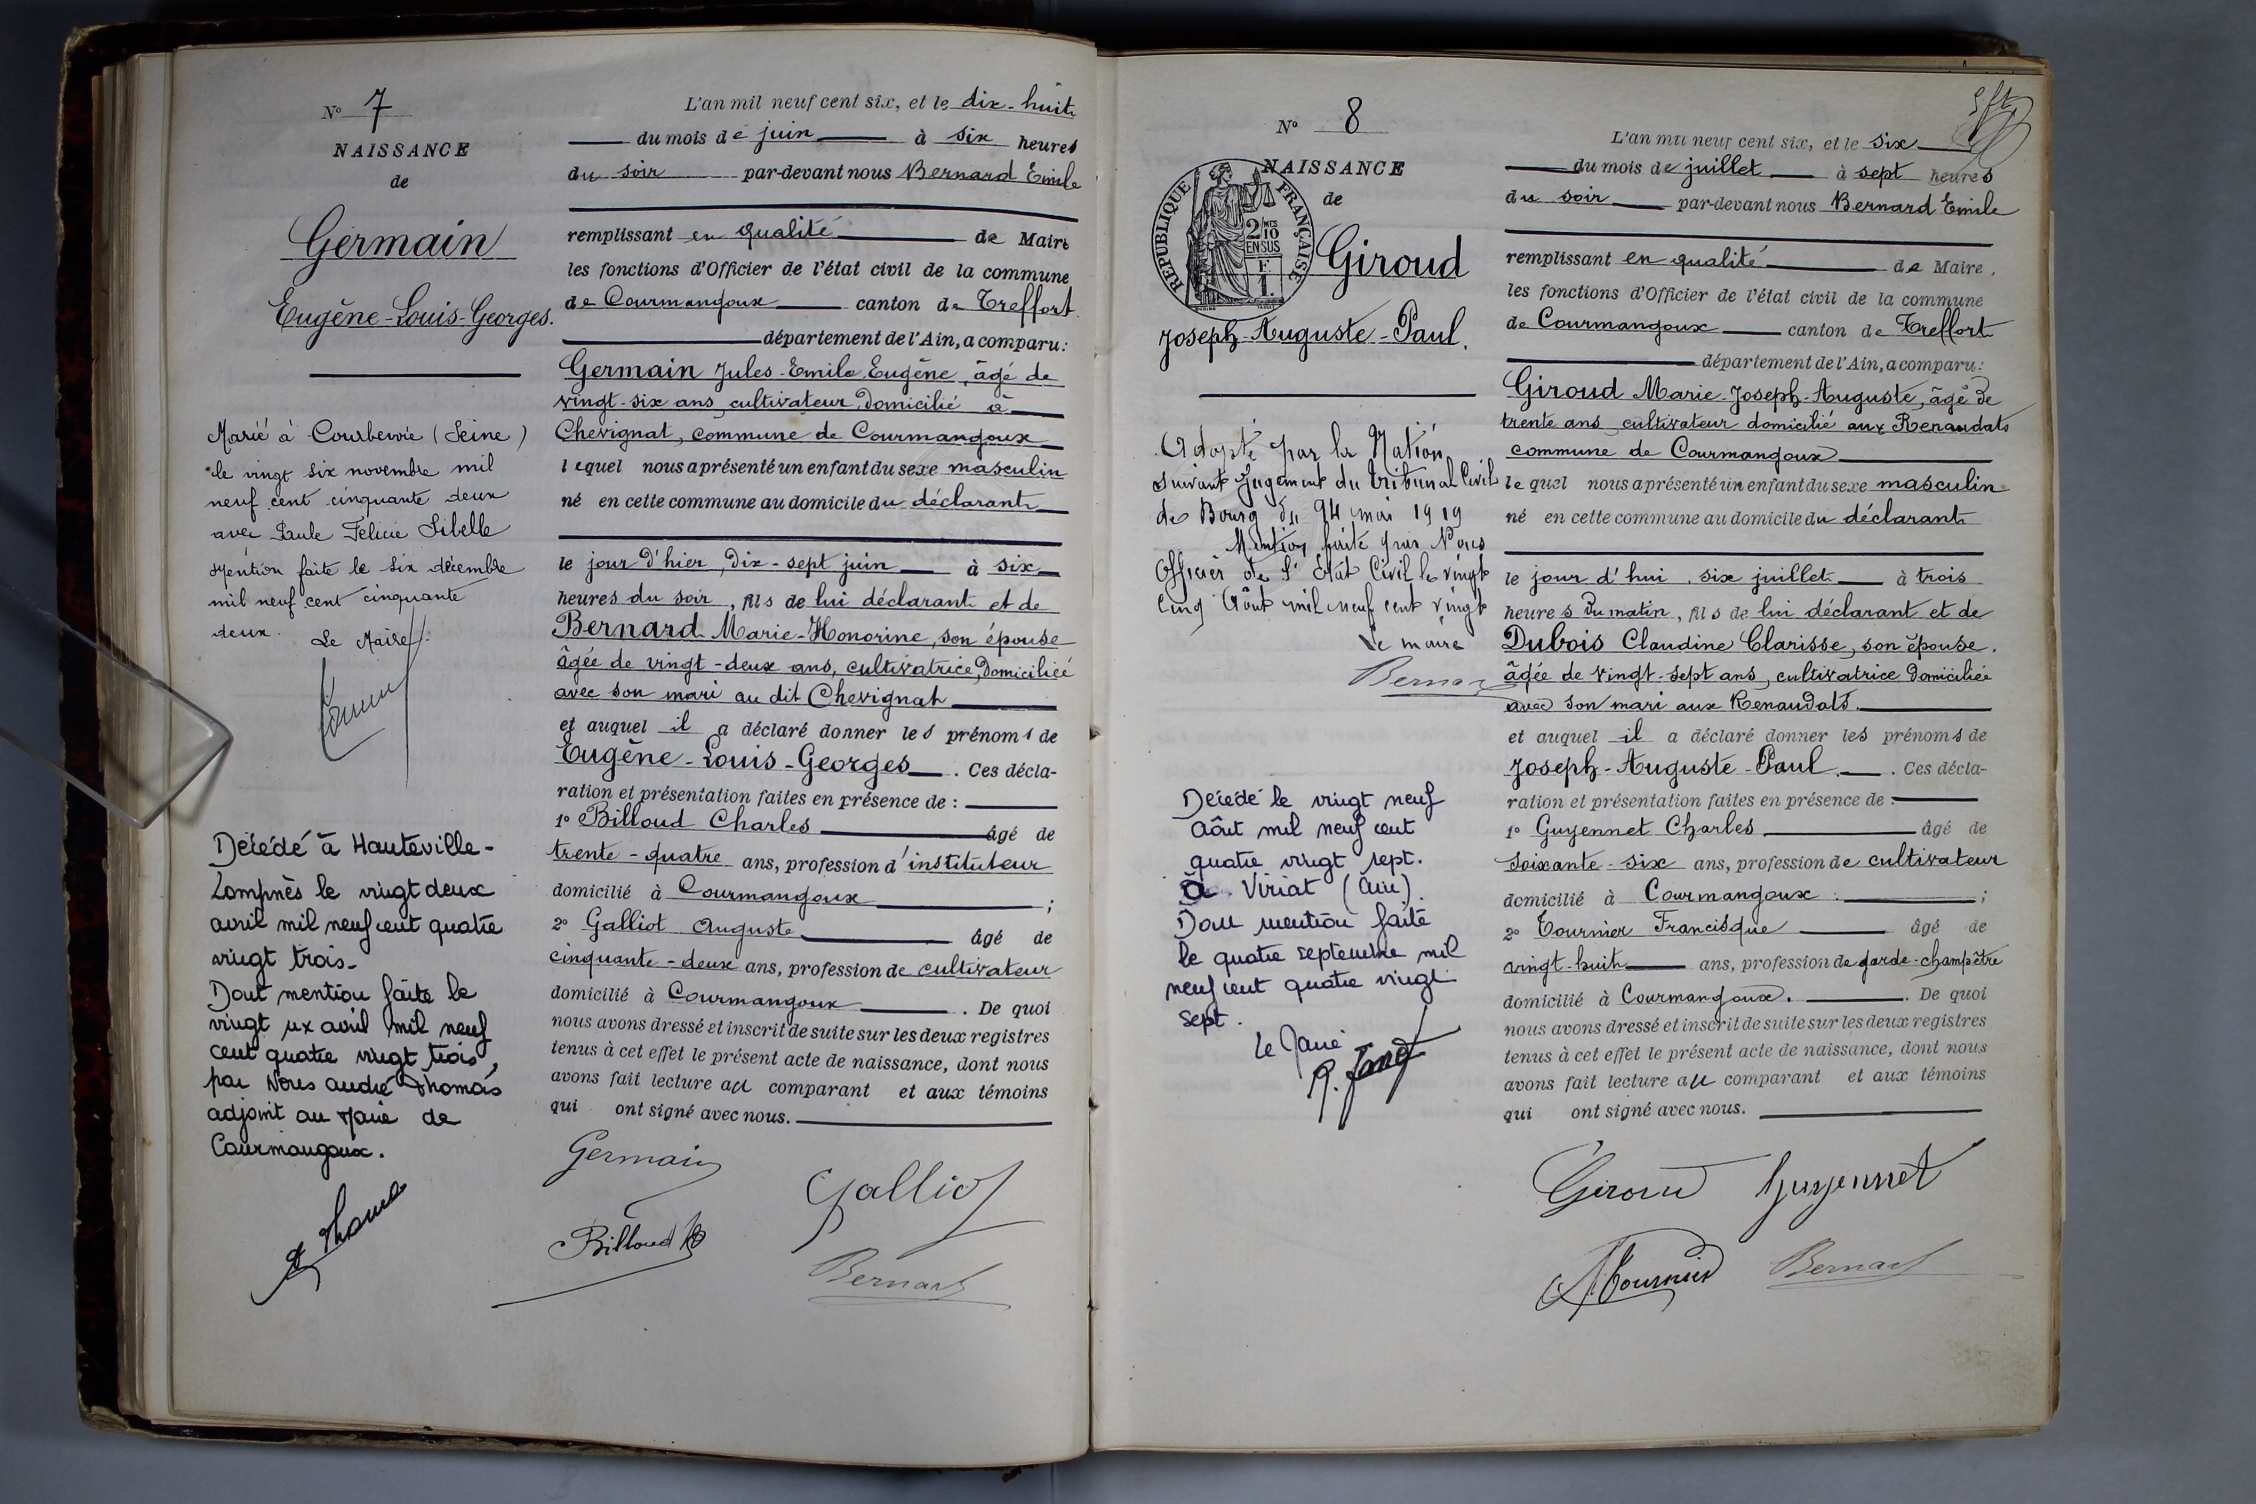 N° 7
NAISSANCE
de
Germain
Eugène-Louis-Georges.
Marié à Courbevoie (Seine)
le vingt six novembre mil
neuf cent cinquante deux
avec Paule Felicie Sibelle
Mention faite le six décembre
mil neuf cent cinquante
deux. Le Maire.
Décédé à Hauteville-
Lompnès le vingt deux
avril mil neuf cent quatre
vingt trois-
Dont mention faite le
vingt six avril mil neuf
cent quatre vingt trois,
par Nous André Thomas
adjoint au Maire de
Courmangoux.
L'an mil neuf cent six, et le dix-huit
du mois de juin à six heures
du soir par-devant nous Bernard Emile
remplissant en qualité de Maire
les fonctions d'Officier de l'état civil de la commune
de Courmangoux canton de Treffort
département de l'Ain, a comparu:
Germain Jules-Emile Eugène, âgé de
vingt-six ans, cultivateur, domicilié à
Chevignat, commune de Courmangoux
lequel nous a présenté un enfant du sexe masculin
né en cette commune au domicile du déclarant
le jour d'hier, dix-sept juin à six
heures du soir, fils de lui déclarant et de
Bernard Marie-Honorine, son épouse
âgée de vingt-deux ans, cultivatrice, domiciliée
avec son mari au dit Chevignat
et auquel il a déclaré donner les prénoms de
Eugène-Louis-Georges. Ces décla-
ration et présentation faites en présence de :
1° Billoud Charles âgé de
trente-quatre ans, profession d'instituteur
domicilié à Courmangoux ;
2° Galliot Auguste âgé de
cinquante-deux ans, profession de cultivateur
domicilié à Courmangoux . De quoi
nous avons dressé et inscrit de suite sur les deux registres
tenus à cet effet le présent acte de naissance, dont nous
avons fait lecture au comparant et aux témoins
qui ont signé avec nous.
Germain
Galliot
Billoud
Bernard
N° 8
NAISSANCE
de
REPUBLIQUE FRANÇAISE
2/10
EN SUS
Giroud
Joseph-Auguste-Paul.
Adopté par la Nation
suivant Jugement du tribunal Civil
de Bourg du 24 mai 1919
Mention faite par Nous
Officier de l'état Civil le vingt
cinq Août mil neuf cent vingt
Le maire
Bernard
Décédé le vingt neuf
août mil neuf cent
quatre vingt sept.
à Viriat (Ain)
Dont mention faite
le quatre septembre mil
neuf cent quatre vingt
sept.
Le Maire
L'an mil neuf cent six, et le six
du mois de juillet à sept heures
du soir par-devant nous Bernard Emile
remplissant en qualité de Maire.
les fonctions d'Officier de l'état civil de la commune
de Courmangoux canton de Treffort
département de l'Ain, a comparu:
Giroud Marie-Joseph-Auguste, âgé de
trente ans, cultivateur domicilié aux Renaudats
commune de Courmangoux
lequel nous a présenté un enfant du sexe masculin
né en cette commune au domicile du déclarant
le jour d'hui, six juillet à trois
heures du matin, fils de lui déclarant et de
Dubois Claudine Clarisse, son épouse.
âgée de vingt-sept ans, cultivatrice domiciliée
avec son mari aux Renaudats.
et auquel il a déclaré donner les prénoms de
Joseph-Auguste-Paul. . Ces décla-
ration et présentation faites en présence de :
1° Guyennet Charles âgé de
soixante-six ans, profession de cultivateur
domicilié à Courmangoux ;
2° Tournier Francisque âgé de
vingt-huit ans, profession de garde-champêtre
domicilié à Courmangoux. . De quoi
nous avons dressé et inscrit de suite sur les deux registres
tenus à cet effet le présent acte de naissance, dont nous
avons fait lecture au comparant et aux témoins
qui ont signé avec nous.
Giroud Guyennet
Tournier Bernard